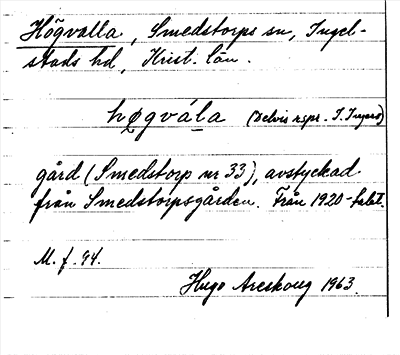 Högvalla, Smedstorps sn, Ingel-
stads hd, Krist. län.
høgvála (Delvis rspr. I. Ingers)
gård (Smedstorp nr 33), avstyckad
från Smedstorpsgården. Från 1920-talet.
M. f. 94.
Hugo Areskoug 1963.